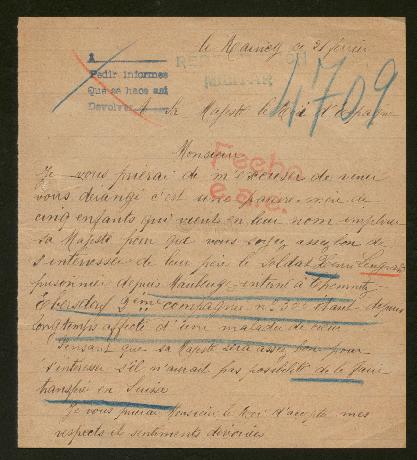 le Raincy ce 21 février
REPRESENTACION
MILITAR
A
Pedir informes
Que se hace así
Devolver
4709
A Sa Majesté le Roi d'Espagne
Fecho
Monsieur
Je vous prierai de m'excuser de venir
vous dérangé c'est une pauvre mère de
cinq enfants qui vient en leur nom implorer
sa Majesté pour que vous soyez assez bon de
s'intéresser de leur père le soldat Henri
prisonnier depuis Maubeuge interné à Chemnitz
Ebersdorf 9ème compagnie n° étant depuis
longtemps affecté d'une maladie de cœur
Pensant que sa Majesté sera assez bon pour
s'intéresser s'il n'aurait pas possibilité de le faire
transféré en Suisse
Je vous prierai Monsieur le Roi d'accepter mes
respects et sentiments dévouées